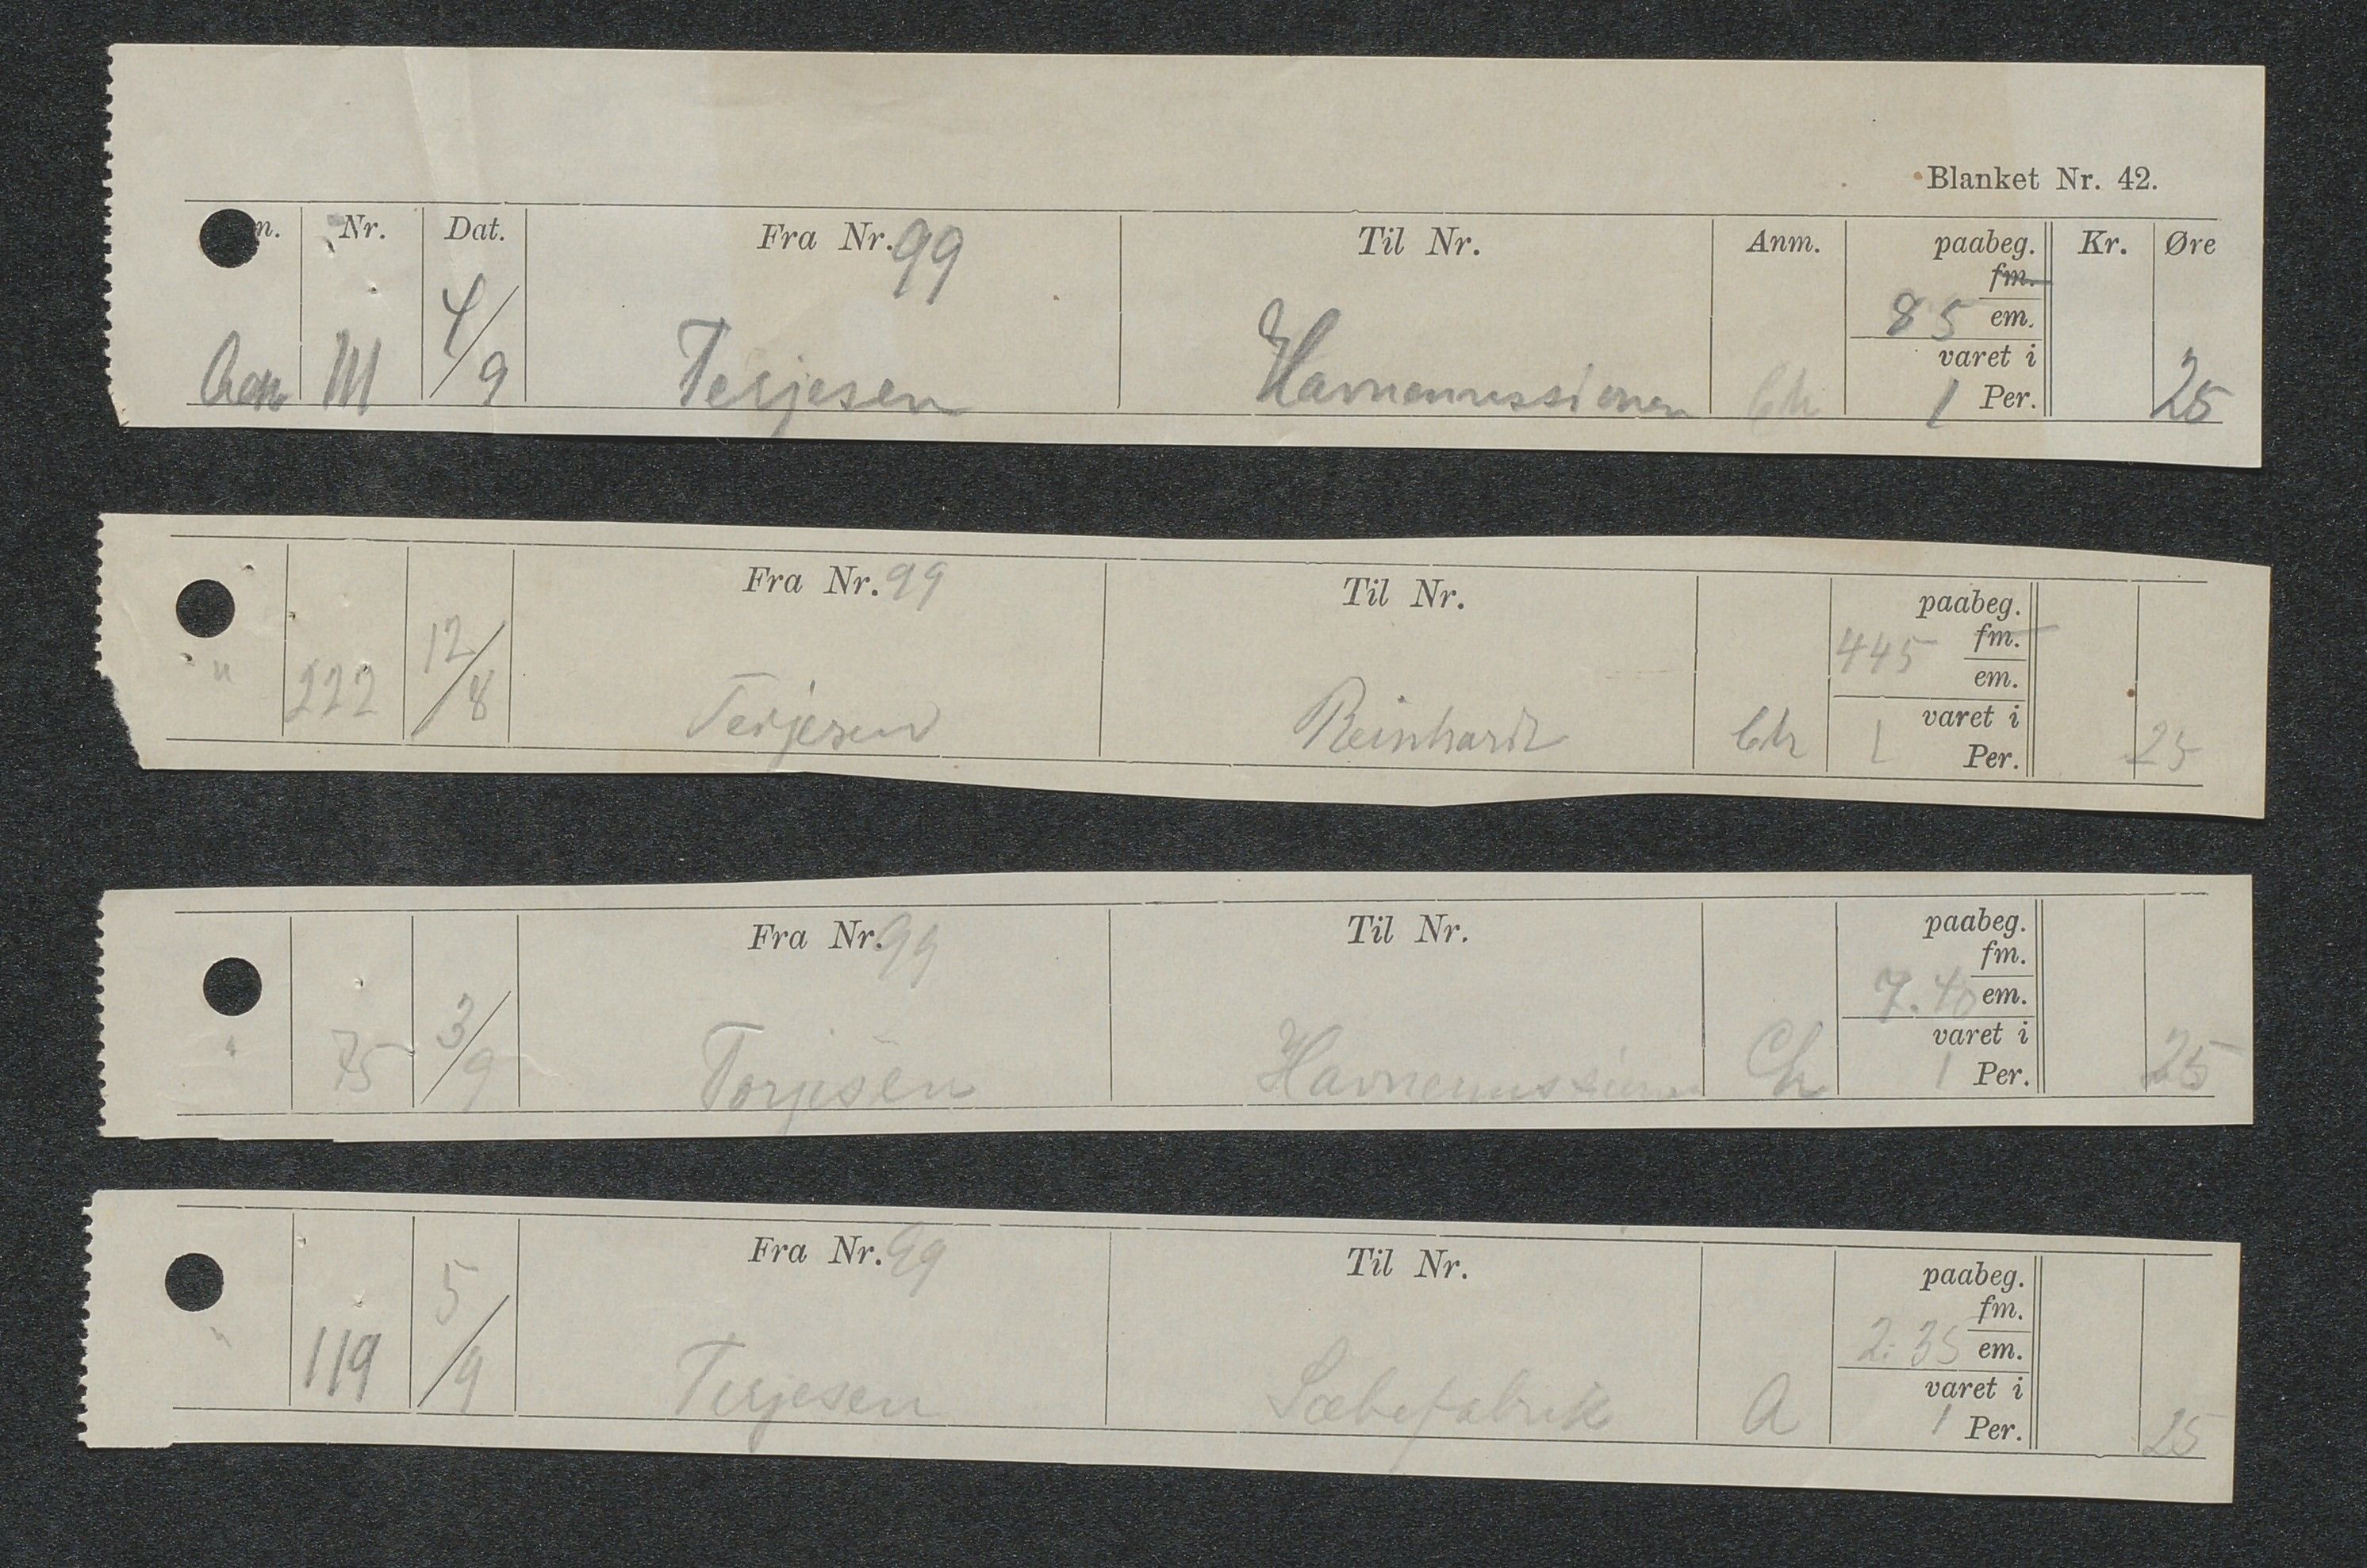 Blanket Nr. 42.
n. Nr. Dat. Fra Nr. 99 Til Nr. Anm. paabeg. Kr. Øre
fm.
4/9 85 em.
varet i
111 Terjesen Havnemissionen Ch 1 Per. 25
Fra Nr. 99 Til Nr. paabeg.
12/8 445 fm.
em.
" 222 Terjesen Reinhardt Ch varet i
1 Per. 25
Fra Nr. 99 Til Nr. paabeg.
fm.
3/9 7.40 em.
varet i
" 75 Torjesen Havnemissionen Ch 1 Per. 25
Fra Nr. 99 Til Nr. paabeg.
fm.
5/9 2.35 em.
varet i
" 119 Terjesen Sæbefabrik A 1 Per. 25